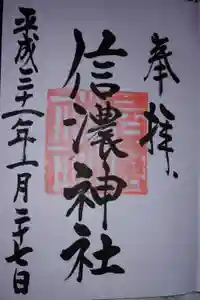 奉拝
信濃神社
平成二十一年一月二十七日